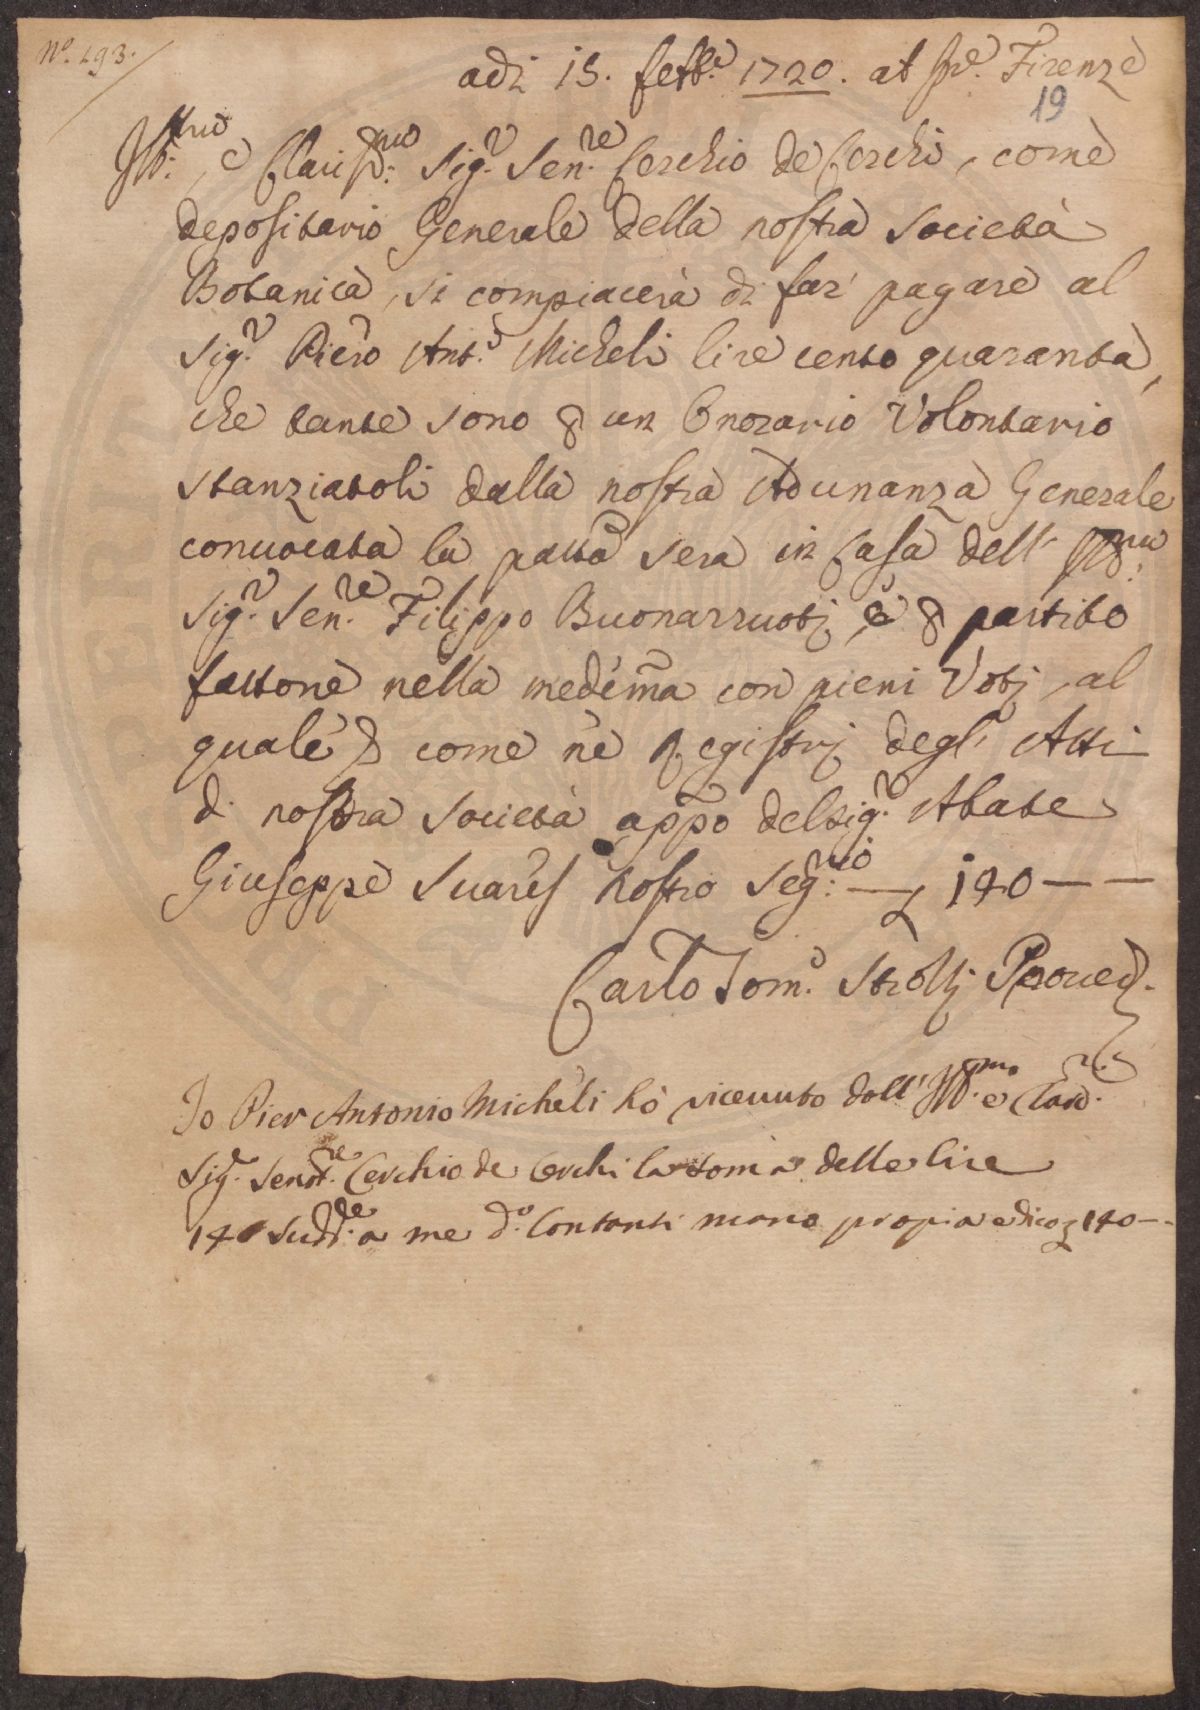 N.o 193.
adi 15. febb.o 1720. ab Inc.e Firenze
19
Ill.mo, e Clariss.mo Sig.r Sen.re Cerchio de Cerchi, come
depositario Generale della nostra Società
Botanica, si compiacerà di far pagare al
Sig.r Piero Ant.o Micheli lire cento quaranta,
che tante sono p un Onorario Volontario
stanziatoli dalla nostra Adunanza Generale
convocata la passa sera in Casa dell' Ill.mo
Sig.r Sen.re Filippo Buonarruotj, e p partito
fattone nella medema con pieni Votj, al
quale & come ne Registrj degl' Atti
di nostra Società appo del Sig.r Abate
Giuseppe Suares nostro Seg.rio — £ 140 — —
Carlo Tom.o Strozzj Proved.re
Io Pier Antonio Micheli hò ricevuto dall' Ill.mo e Clar.mo
Sig.r Senat.re Cerchio de Cerchi la soma delle lire
140 Sudd.e a me d.o Contanti mano propia e dico £ 140 —